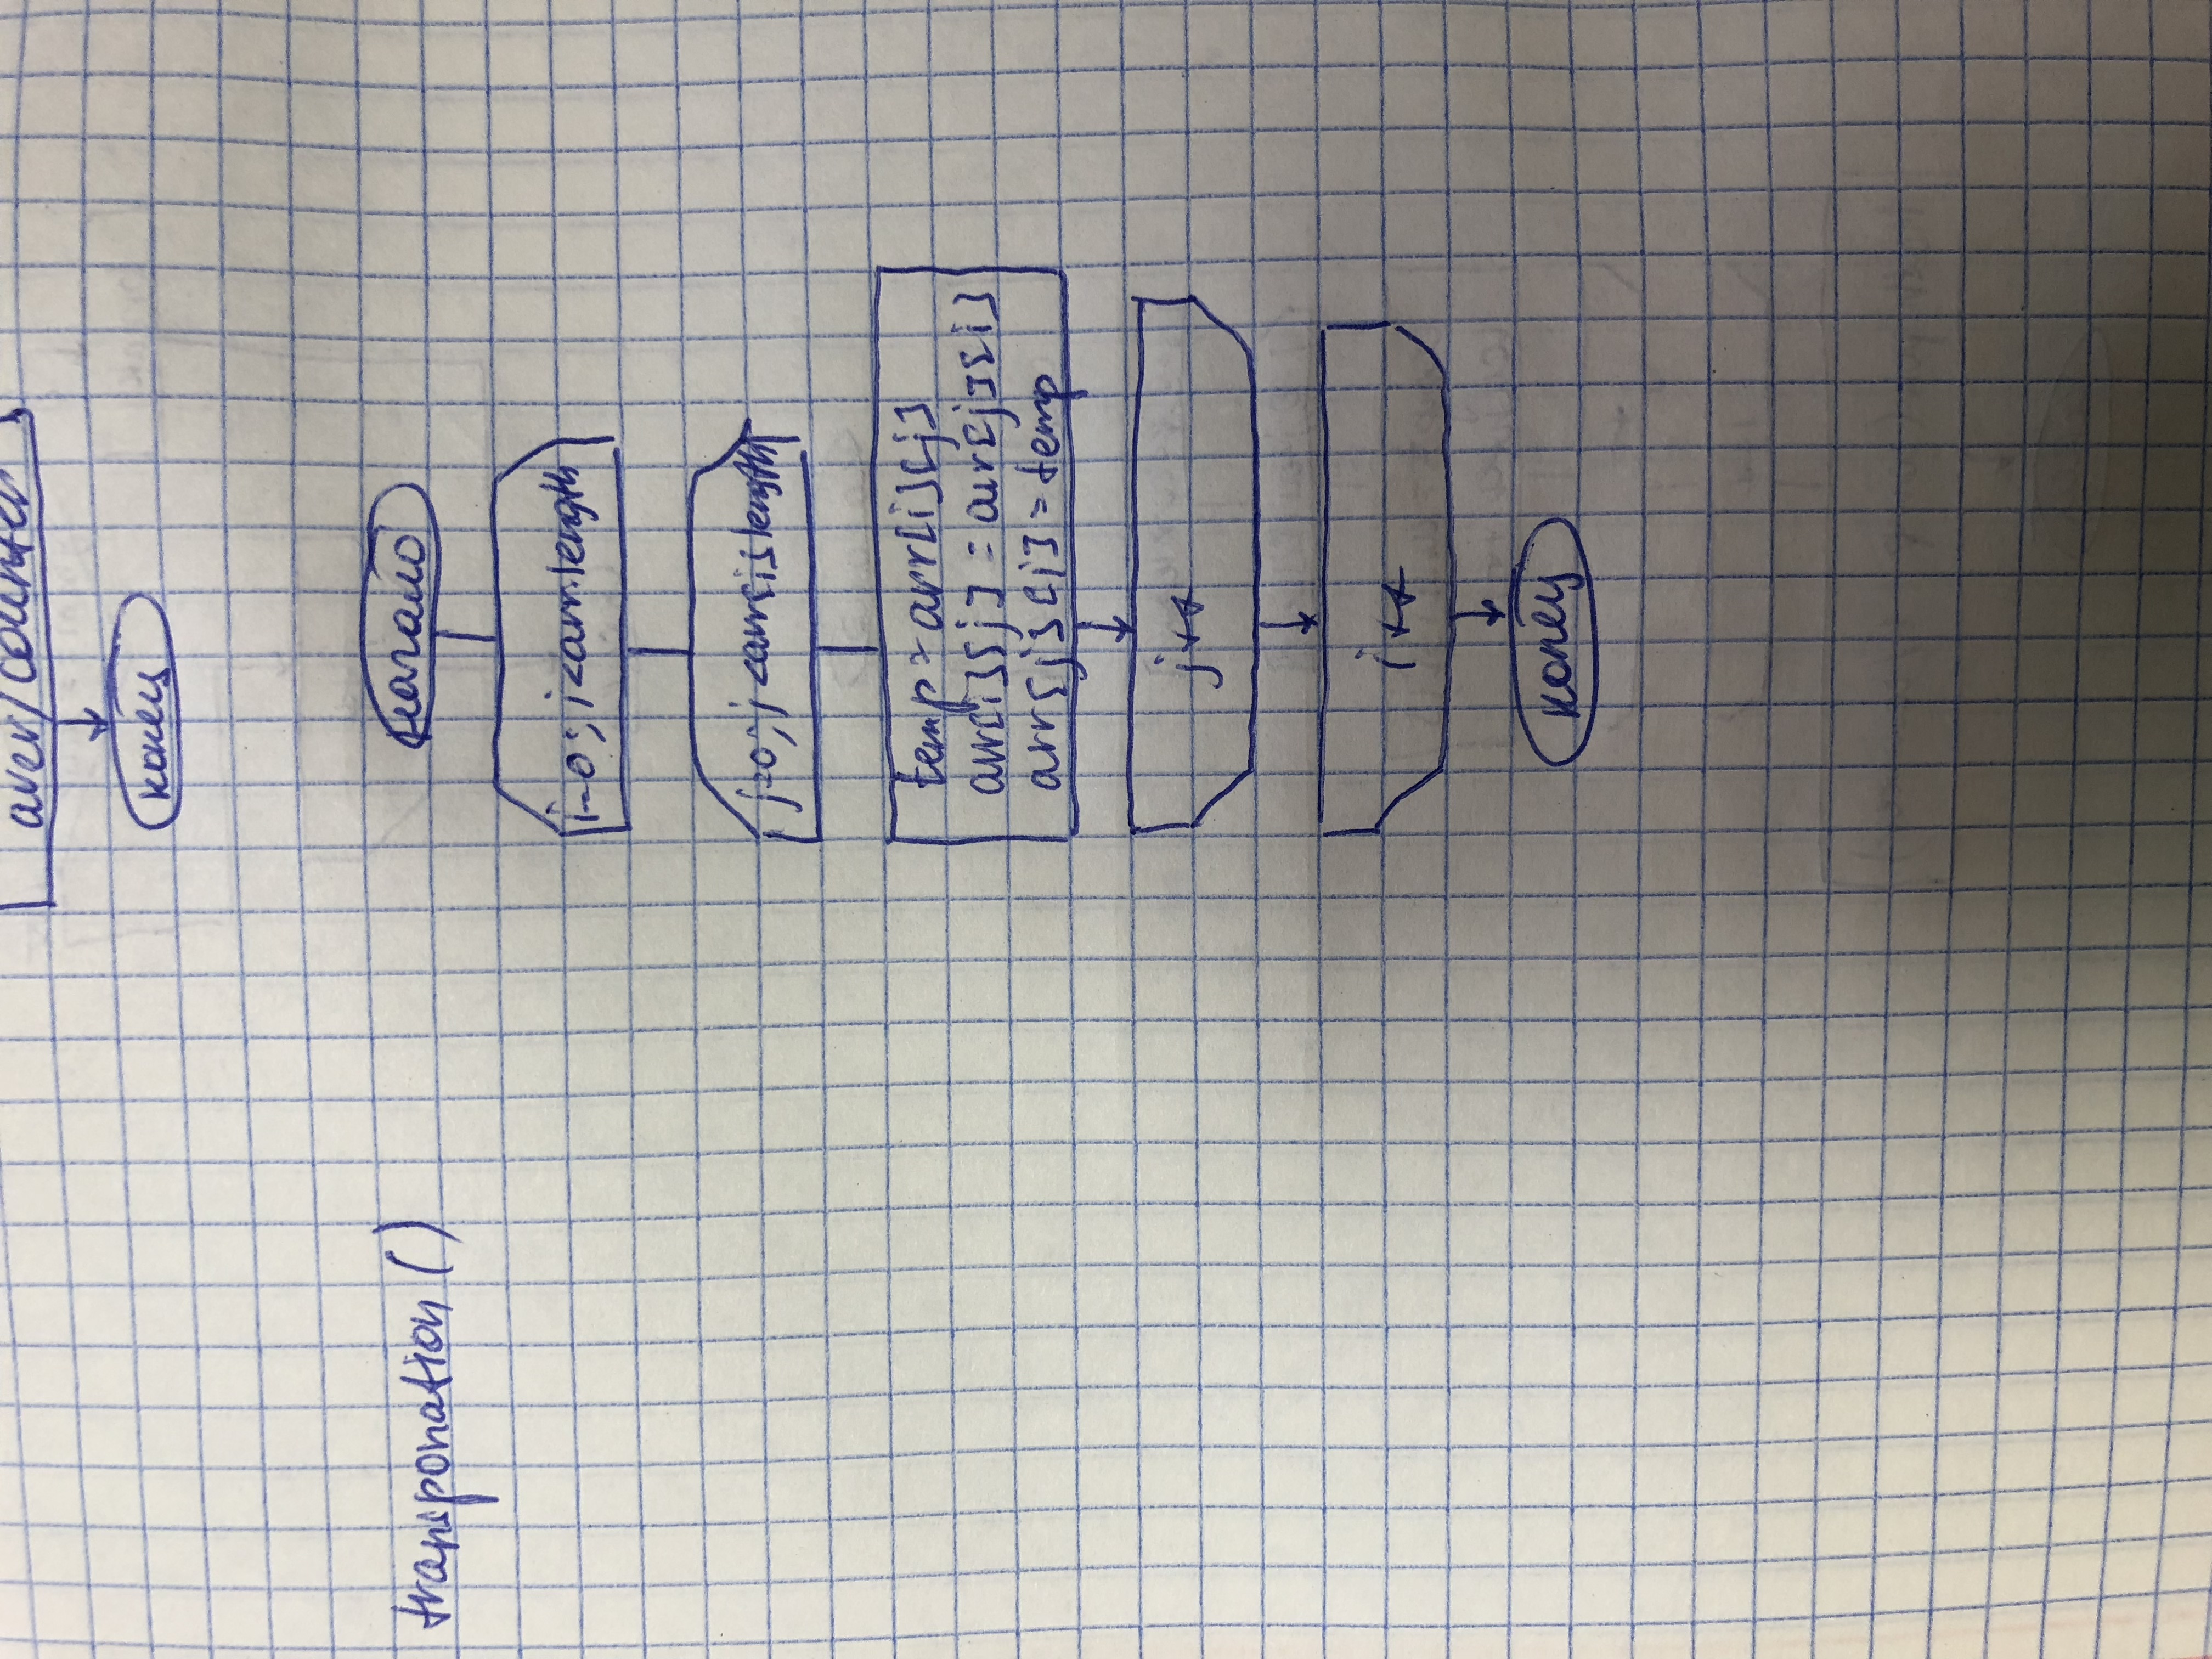 aver/counter;
конец
transponation ()
начало
i=0; i<arr.length
j=0; j<arr[i]length
temp=arr[i][j]
arr[i][j] = arr[j][i]
arr[j][i] = temp
j++
i++
конец